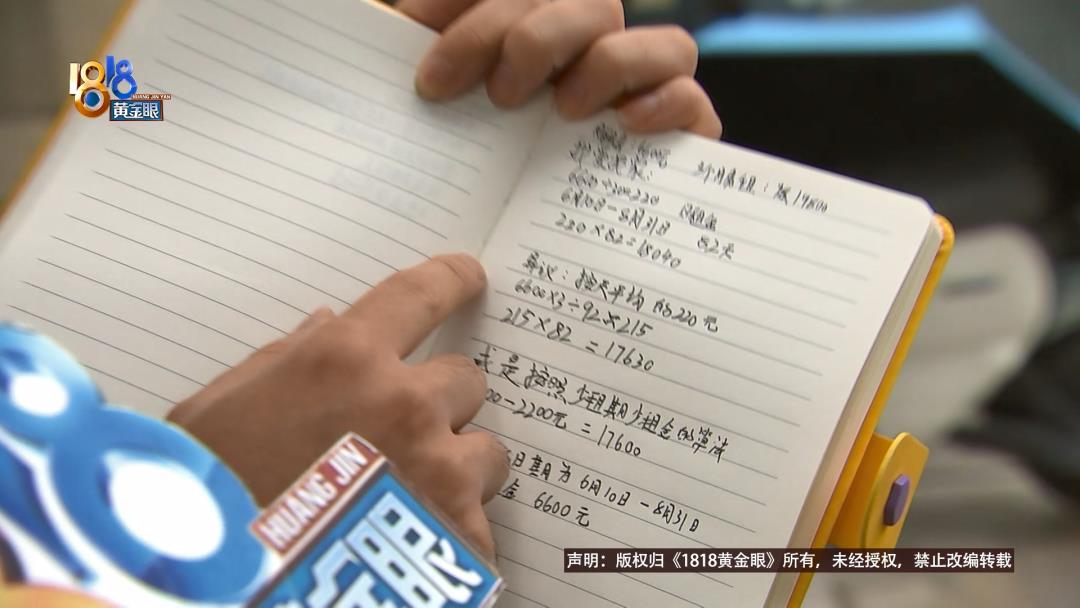 1818
HUANG JIN YAN
黄金眼
6月10日-8月31日 82天
220×82=18040
异议:按天平均 的220元
6600×3÷92≈215
215×82=17630
我是按照少租期少租金的算法
00-2200元=17600
日期为6月10日-8月31日
金 6600元
HUANG JIN
金眼
声明:版权归《1818黄金眼》所有,未经授权,禁止改编转载